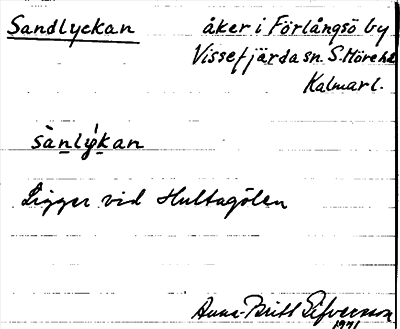 Sandlyckan åker i Förlångsö by
Vissefjärda sn. S. Möre hd
Kalmar l.
sànlýkan
Ligger vid Hultagölen
Anna-Britt
1971